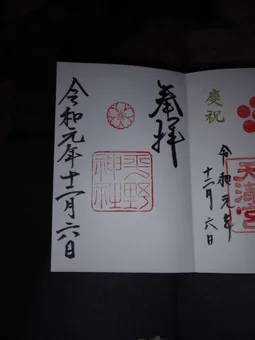 慶祝
天満宮
令和元年
十二月六日
奉拝
平野神社
令和元年十二月六日